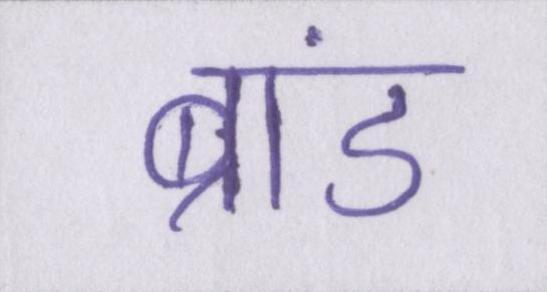 ब्रांड